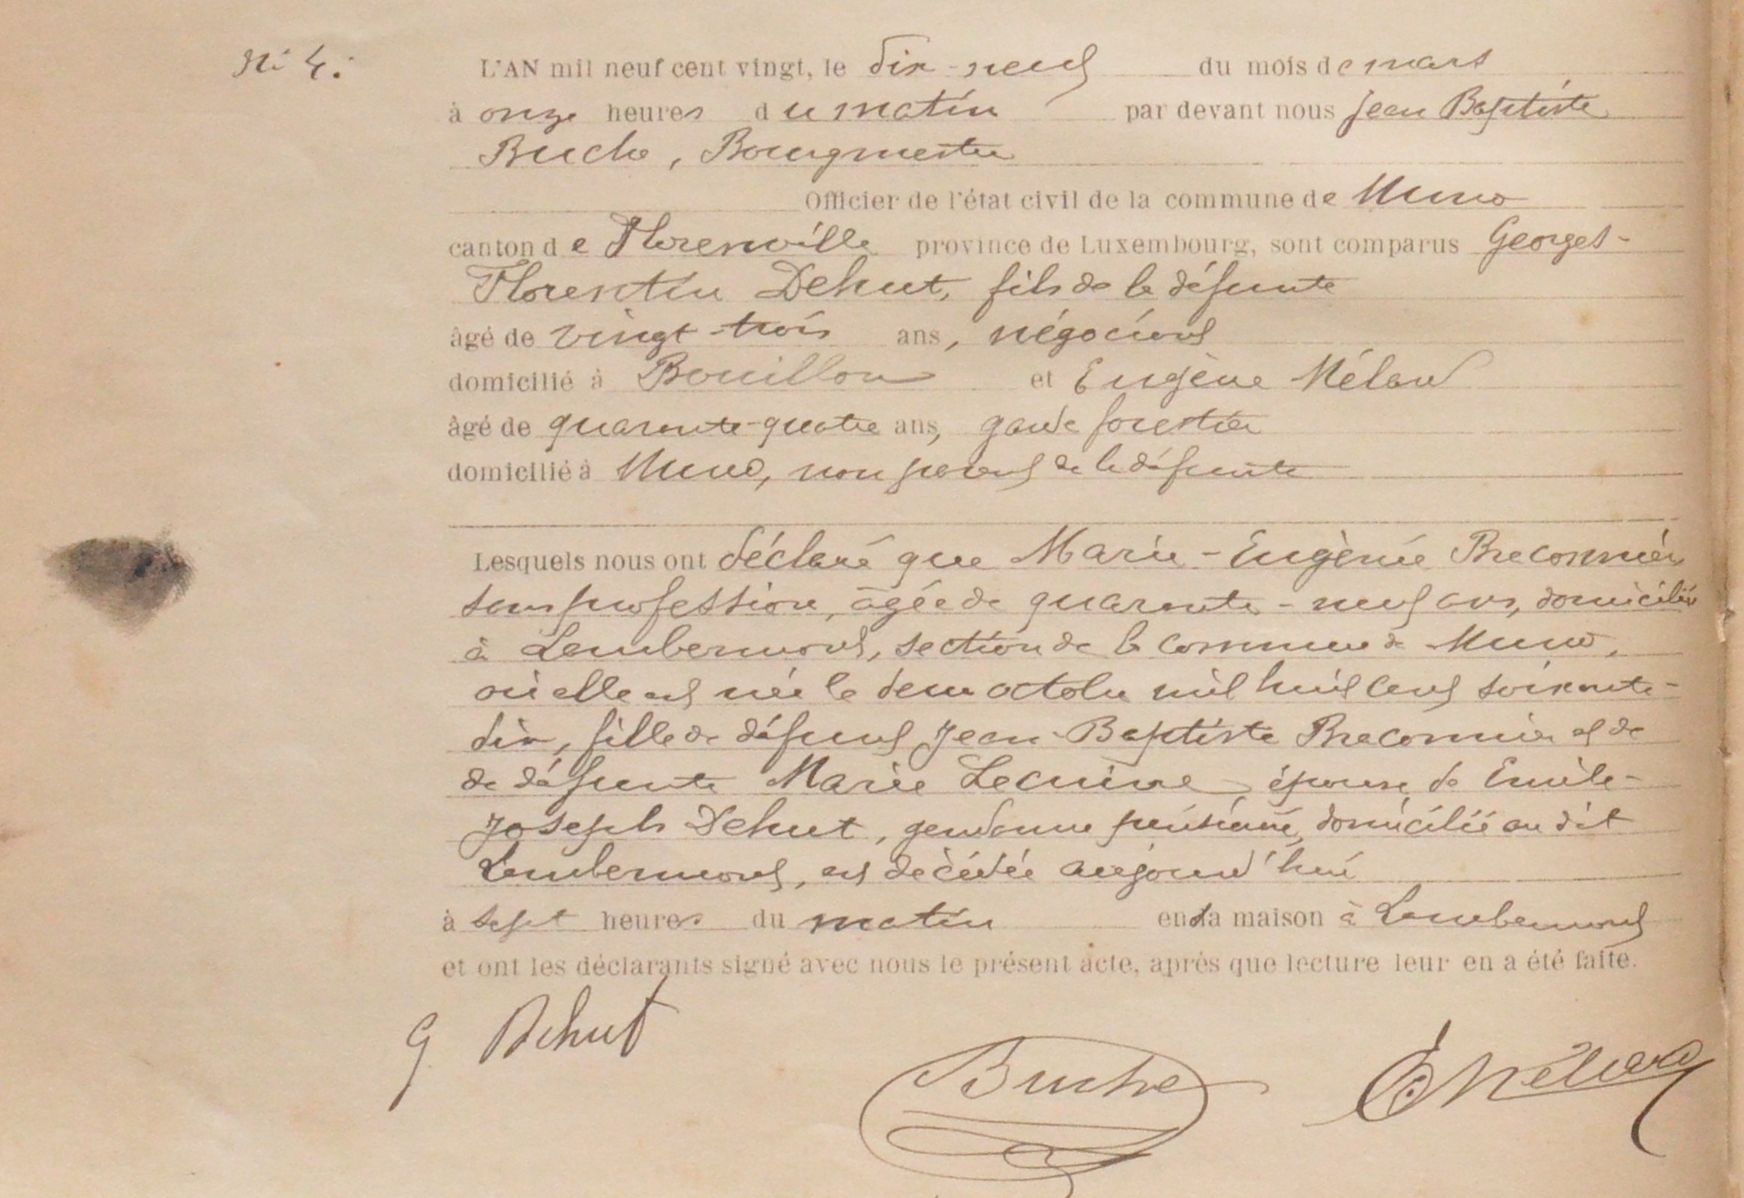 N° 4.
L'AN mil neuf cent vingt, le dix-neuf du mois de mars
à onze heures du matin par devant nous Jean Baptiste
Buche, Bourgmestre
Officier de l'état civil de la commune de Muno
canton de Florenville province de Luxembourg, sont comparus Georges-
Florentin Dehut, fils de la défunte
âgé de vingt-trois ans, négociant
domicilié à Bouillon et Eugène Mélard
âgé de quarante-quatre ans, garde forestier
domicilié à Muno, non parent de la défunte
Lesquels nous ont déclaré que Marie-Eugènie Braconnier
sans profession, âgée de quarante-neuf ans, domiciliée
à Lambermont, section de la commune de Muno,
où elle est née le deux octobre mil huit cent soixante-
dix, fille de défunt Jean-Baptiste Braconnier et de
de défunte Marie Lecuivre épouse de Emile-
Joseph Dehut, gendarme pensionné, domicilié au dit
Lambermont, est décédée aujourd'hui
à sept heures du matin en sa maison à Lambermont
et ont les déclarants signé avec nous le présent acte, après que lecture leur en a été faite.
G Dehut
Buche
E Mélard